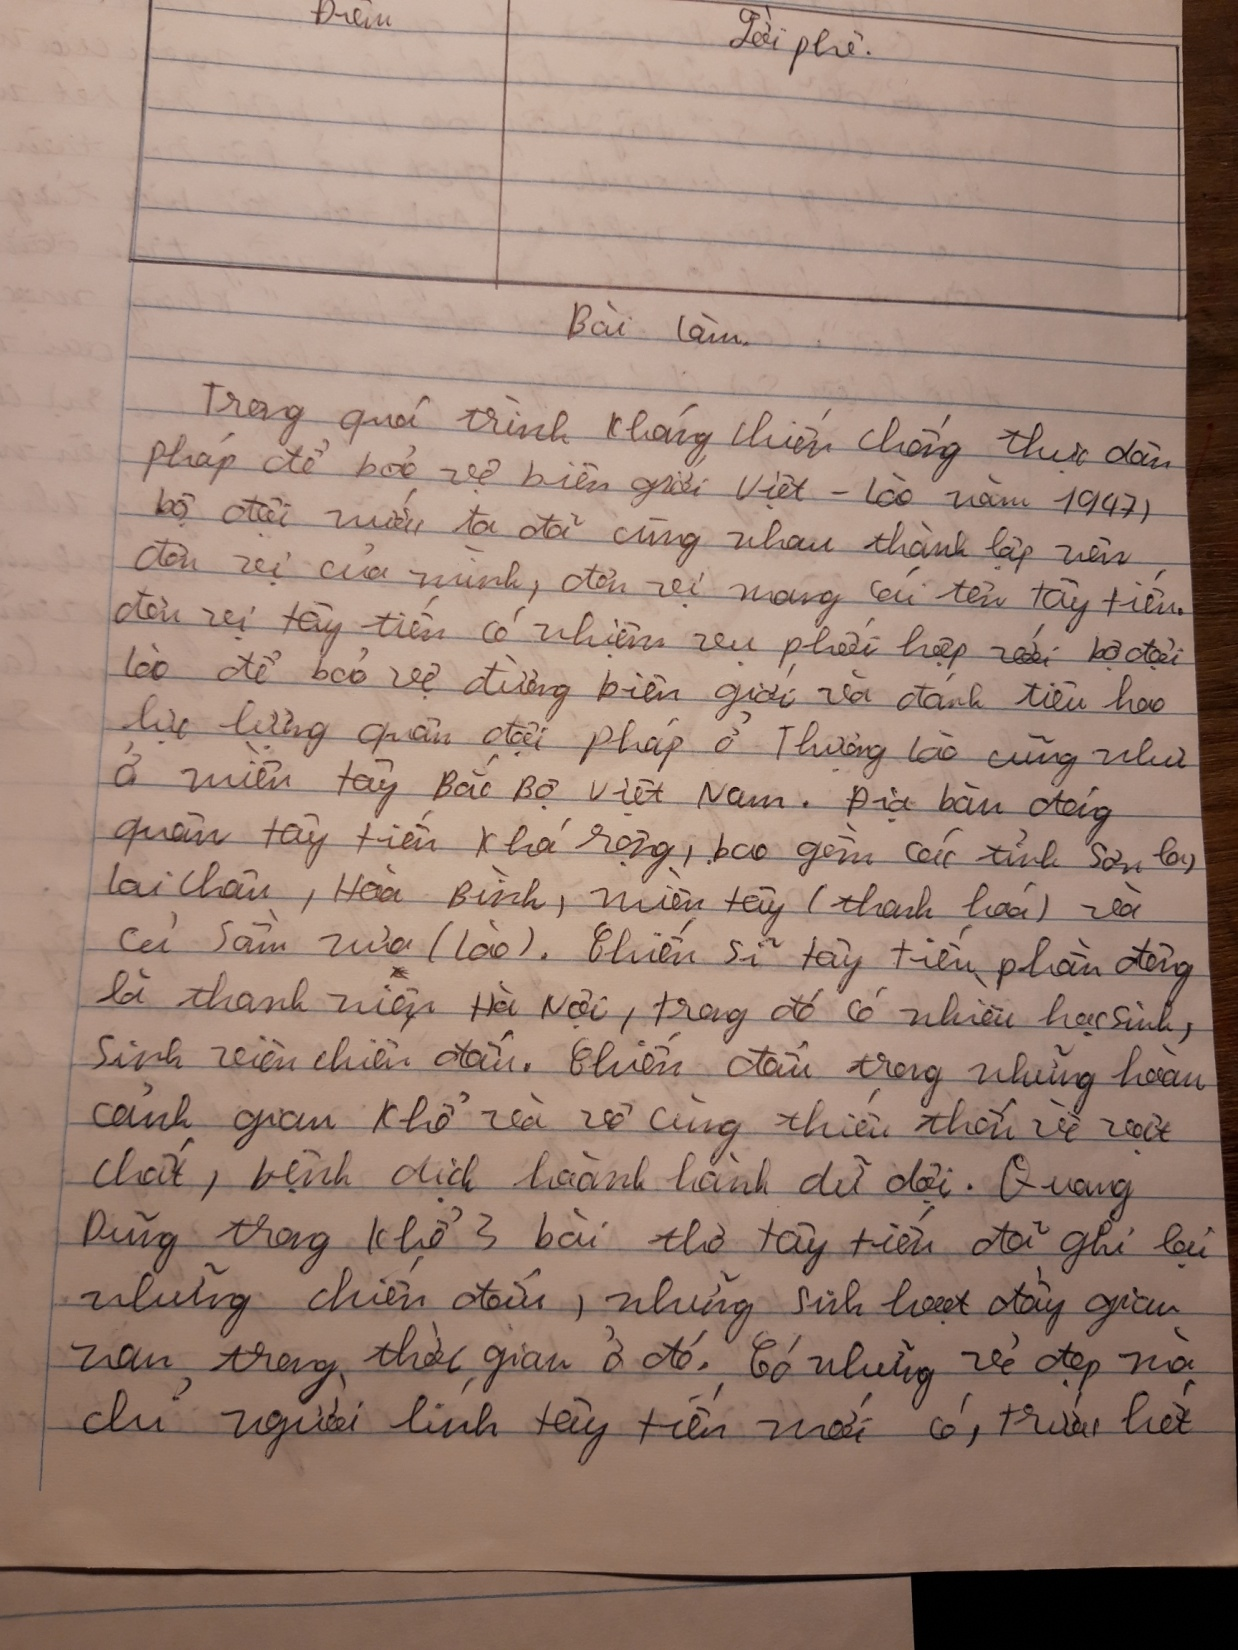 Điểm
Lời phê.
Bài làm.
Trong quá trình kháng chiến chống thực dân
pháp để bảo vệ biên giới Việt - Lào năm 1947,
bộ đội nước ta đã cùng nhau thành lập nên
đơn vị của mình, đơn vị mang cái tên tây tiến.
đơn vị tây tiến có nhiệm vụ phối hợp với bộ đội
lào để bảo vệ đường biên giới và đánh tiêu hao
lực lượng quân đội pháp ở Thượng lào cũng như
ở miền tây Bắc Bộ Việt Nam. Địa bàn đóng
quân tây tiến khá rộng, bao gồm các tỉnh Sơn la,
lai châu, Hoà Bình, miền tây (thanh hoá) và
cả Sầm nưa (lào). Chiến sĩ tây tiến phần đông
là thanh niên Hà Nội, trong đó có nhiều học sinh,
Sinh viên chiến đấu. Chiến đấu trong những hoàn
cảnh gian khổ và vô cùng thiếu thốn về vật
chất, bệnh dịch hoành hành dữ dội. Quang
Dũng trong khổ 3 bài thơ tây tiến đã ghi lại
những chiến đấu, những sinh hoạt đầy gian
nan trong thời gian ở đó. Có những vẻ đẹp mà
chỉ người lính tây tiến mới có, trước hết